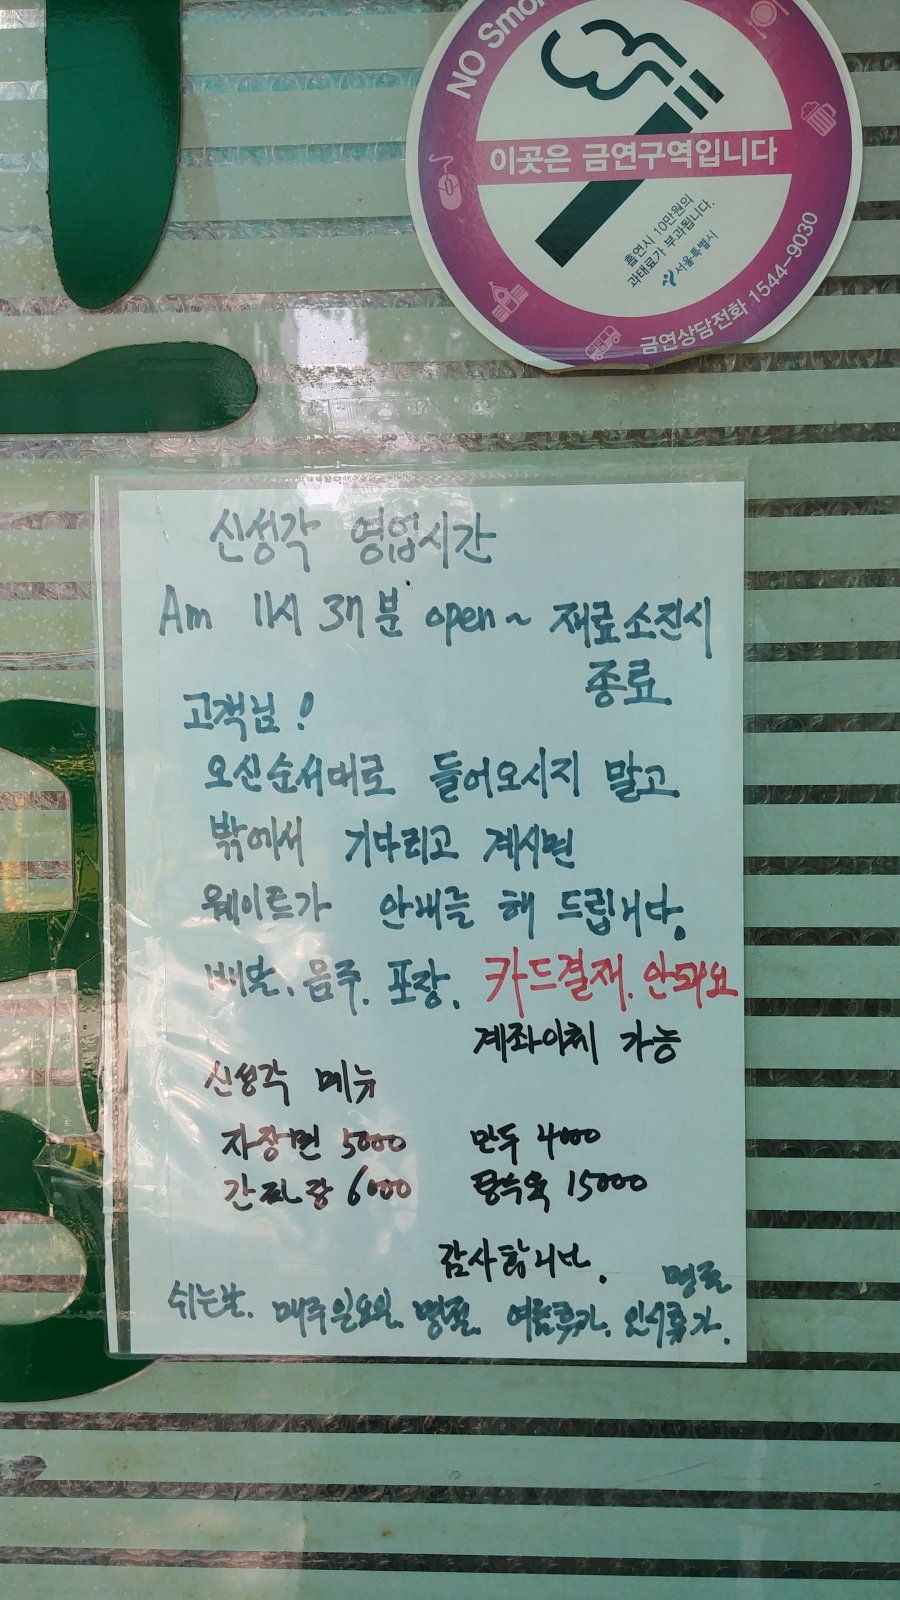 NO Smo
이곳은 금연구역입니다
흡연시 10만원의
과태료가 부과됩니다.
서울특별시
금연상담전화 1544-9030
신성각 영업시간
Am 11시 37분 open~ 재료소진시
종료
고객님!
오신순서대로 들어오시지 말고
밖에서 기다리고 계시면
웨이트가 안배를 해 드립니다.
배달. 음주. 포장. 카드결재. 안돼요
계좌이체 가능
신성각 메뉴
자장면 5000 만두 4000
간짜장 6000 탕수육 15000
감사합니다.
명절
쉬는날. 매주일요일. 명절. 여름휴가.